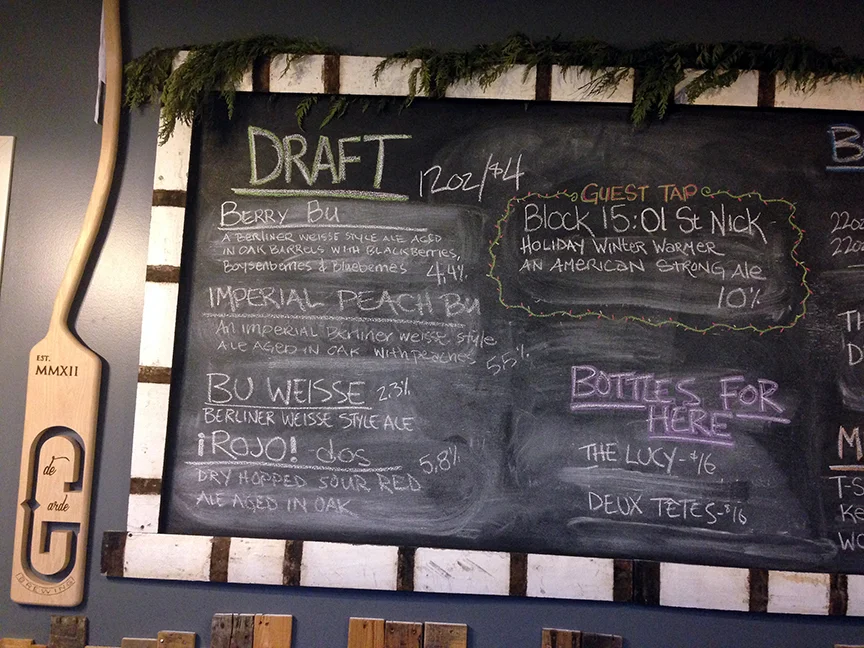 DRAFT
12oz/$4
BERRY BU
A BERLINER WEISSE STYLE ALE AGED
IN OAK BARRELS WITH BLACKBERRIES,
BOYSENBERRIES & BLUEBERRIES 4.4%
IMPERIAL PEACH BU
AN IMPERIAL BERLINER WEISSE STYLE
ALE AGED IN OAK WITH PEACHES 5.5%
BU WEISSE 2.3%
BERLINER WEISSE STYLE ALE
¡ROJO! dos 5.8%
DRY HOPPED SOUR RED
ALE AGED IN OAK
GUEST TAP
BLOCK 15: 01 ST NICK -
HOLIDAY WINTER WARMER
AN AMERICAN STRONG ALE
10%
BOTTLES FOR
HERE
THE LUCY - $16
DEUX TETES - $16
B
22oz
22oz
TH
D
M
T-S
KE
WO
EST.
MMXII
de
Garde
BREWING